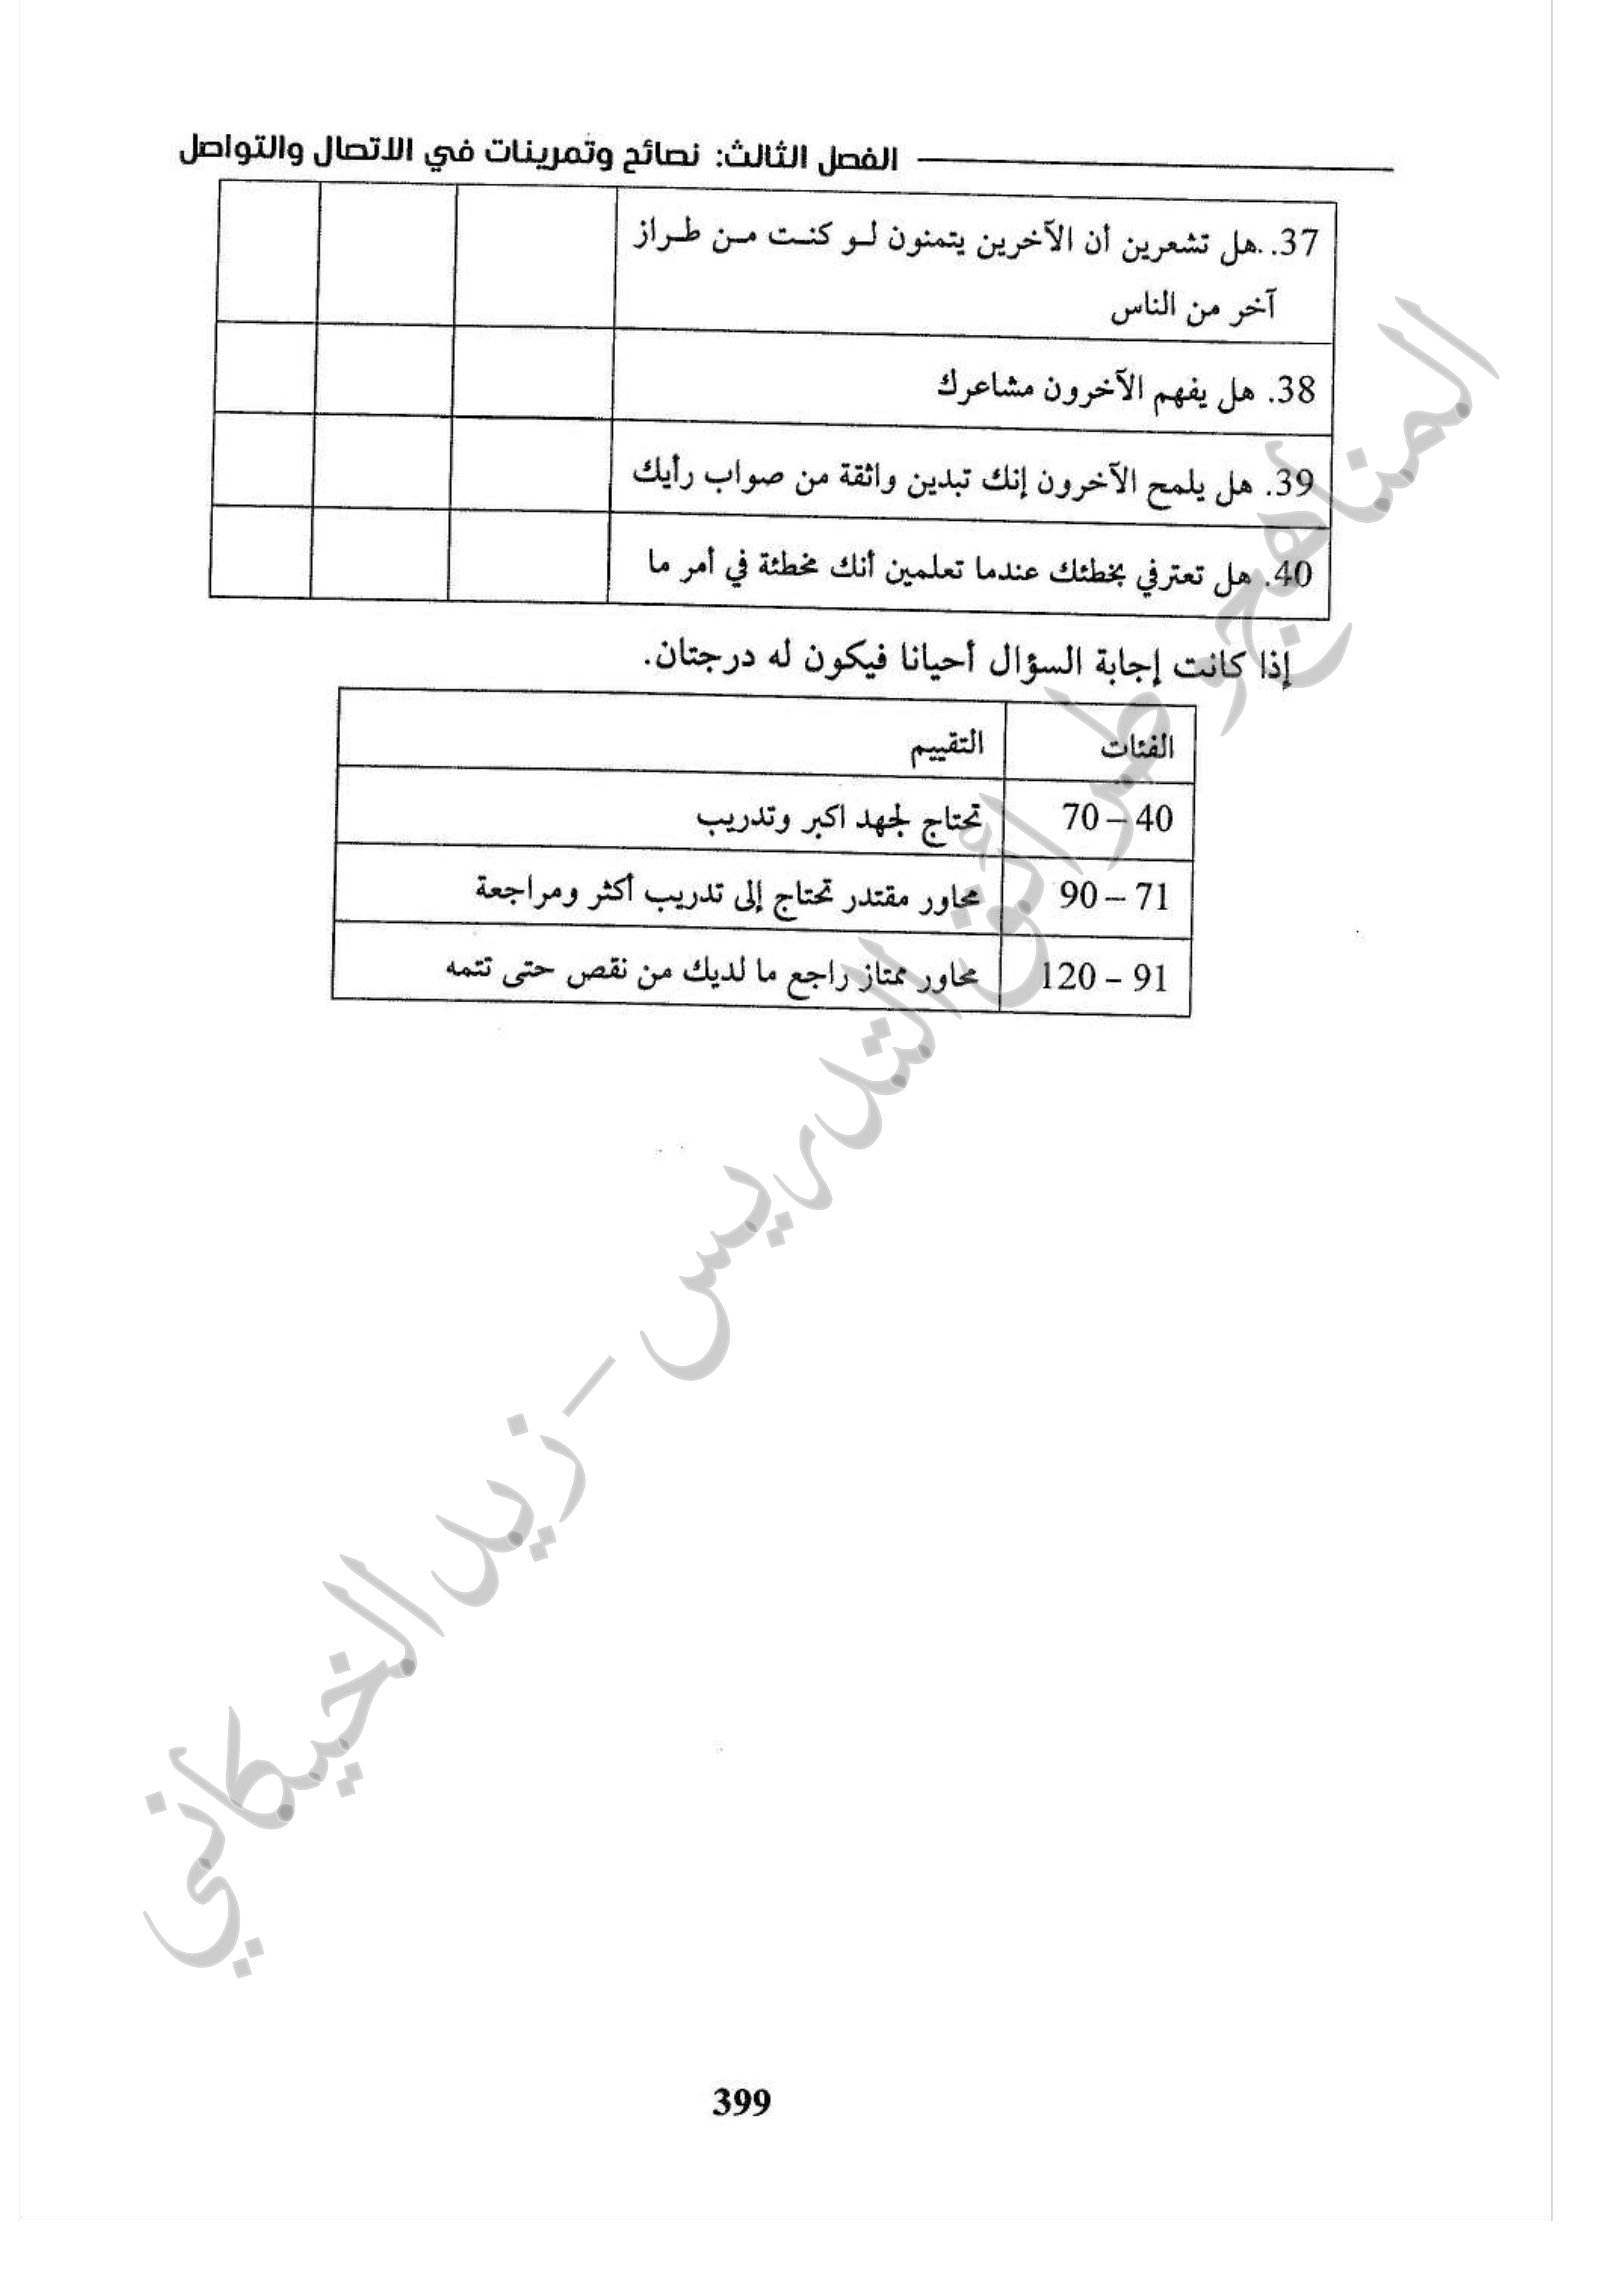 الفصل الثالث: نصائح وتمرينات في الاتصال والتواصل
37. .هل تشعرين أن الآخرين يتمنون لو كنت من طراز
آخر من الناس
38. هل يفهم الآخرون مشاعرك
39. هل يلمح الآخرون إنك تبدين واثقة من صواب رأيك
40. هل تعترفي بخطئك عندما تعلمين أنك مخطئة في أمر ما
إذا كانت إجابة السؤال أحيانا فيكون له درجتان.
الفئات التقييم
40 – 70 تحتاج لجهد اكبر وتدريب
71 – 90 محاور مقتدر تحتاج إلى تدريب أكثر ومراجعة
91 – 120 محاور ممتاز راجع ما لديك من نقص حتى تتمه
المناهج وطرائق التدريس - زيد الخيكاني
399